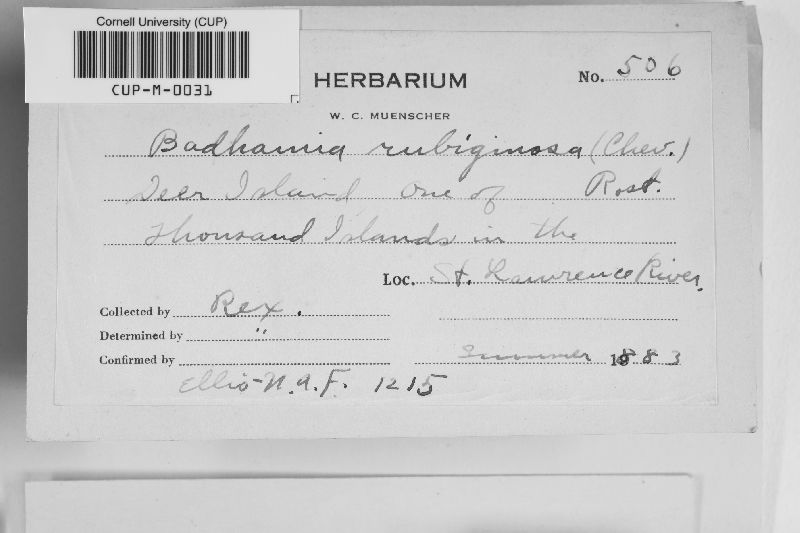 Cornell University (CUP)
CUP-M-0031
HERBARIUM
No. 506
W. C. MUENSCHER
Badhamia rubiginosa (Chev.)
Deer Island one of Rost.
Thousand Islands in the
Loc. St. Lawrence River.
Collected by Rex.
Determined by "
Confirmed by
Summer 1883
Ellis-N.A.F. 1215